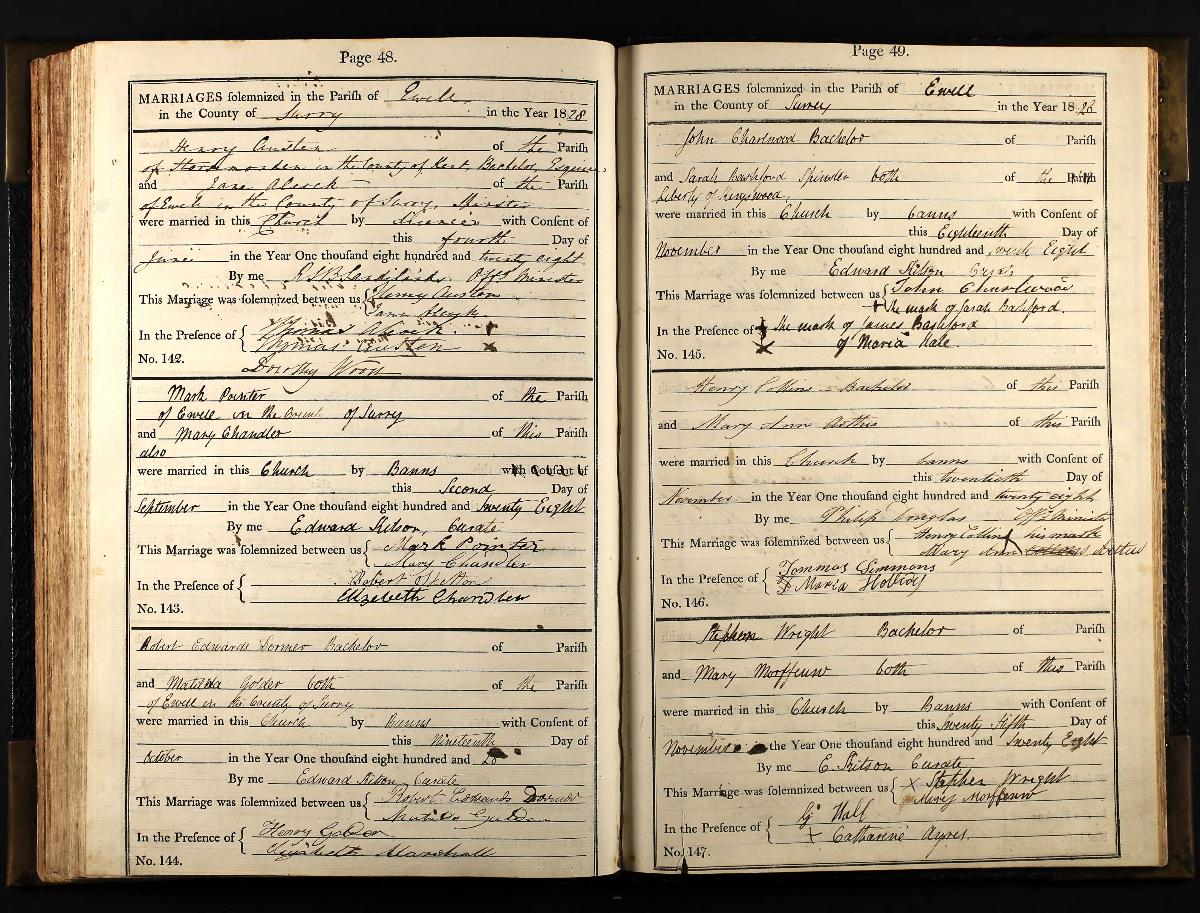 Page 48.
MARRIAGES solemnized in the Parish of Ewell
in the County of Surry in the Year 1828
Henry Austen of the Parish
of Horsmonden in the County of Kent, Bachelor, Esquire
and Jane Alcock of the Parish
of Ewell in the County of Surry, Minster
were married in this Church by Licence with Consent of
this fourth Day of
June in the Year One thousand eight hundred and twenty eight
By me Offg Minister
This Marriage was solemnized between us Henry Austen
Jane Alcock
In the Presence of Thomas Alcock
Thomas Austen
No. 142.
Dorothy Wood
Mark Pointer of the Parish
of Ewell in the County of Surry
and Mary Chandler of this Parish
also
were married in this Church by Banns with Consent of
this Second Day of
September in the Year One thousand eight hundred and Twenty Eight
By me Edward Kitson, Curate
This Marriage was solemnized between us Mark Pointer
Mary Chandler
In the Presence of Robert
Elizebeth Chandler
No. 143.
Robert Edwards Dormer Bachelor of Parish
and Matilda Golder both of the Parish
of Ewell in the County of Surry
were married in this Church by Banns with Consent of
this Nineteenth Day of
October in the Year One thousand eight hundred and 28
By me Edward Kitson, Curate
This Marriage was solemnized between us Robert Edwards Dormer
Matilda Golder
In the Presence of Henry Golder
Elizabeth Marshall
No. 144.
Page 49.
MARRIAGES solemnized in the Parish of Ewell
in the County of Surrey in the Year 1828
John Charlwood Bachelor of Parish
and Sarah Bashford Spinster both of the Parish
Liberty of Kingswood
were married in this Church by banns with Consent of
this Eighteenth Day of
November in the Year One thousand eight hundred and Eight
By me Edward Kitson
This Marriage was solemnized between us John Charlwood
+ the mark of Sarah Bashford.
In the Presence of + the mark of James Bashford
X of Maria Hale.
No. 145.
Henry Collins Bachelor of this Parish
and Mary Ann of this Parish
were married in this Church by banns with Consent of
this twentieth Day of
November in the Year One thousand eight hundred and twenty eight
By me Philip Douglas Offg Minister
This Marriage was solemnized between us Henry Collins X his mark
Mary Ann
In the Presence of Tommas Simmons
X Maria
No. 146.
Stephen Wright Bachelor of Parish
and Mary Morffew both of this Parish
were married in this Church by Banns with Consent of
this Twenty Fifth Day of
November in the Year One thousand eight hundred and Twenty Eight
By me E. Kitson Curate
This Marriage was solemnized between us X Stephen Wright
Mary Morffew
In the Presence of Hall
+ Catharine Ayres
No. 147.